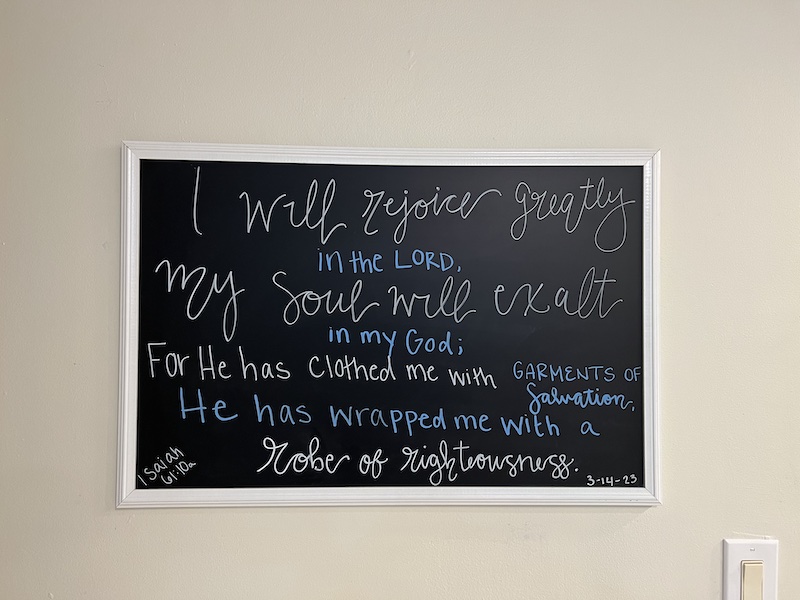 I will rejoice greatly
in the LORD,
My Soul will exalt
in my God;
For He has clothed me with GARMENTS OF
Salvation,
He has wrapped me with a
robe of righteousness.
Isaiah
61:10a
3-14-23